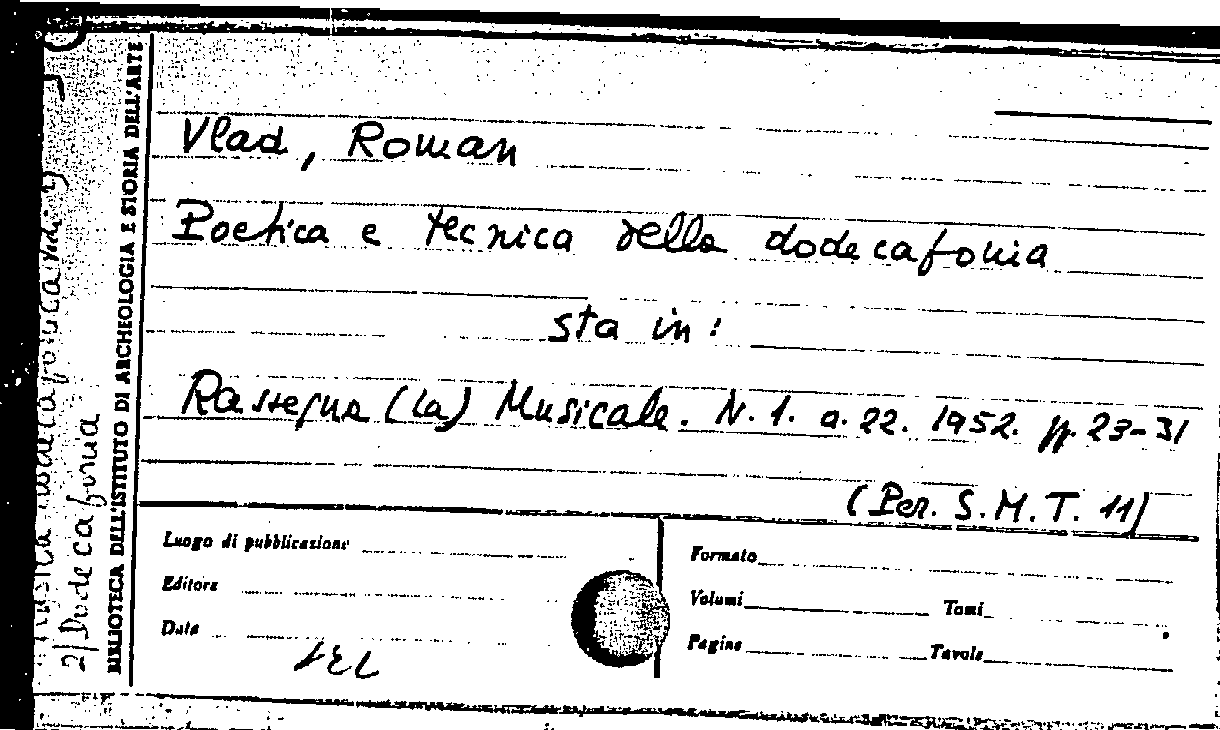 BIBLIOTECA DELL'ISTITUTO DI ARCHEOLOGIA E STORIA DELL'ARTE
2) Dodecafonia
Vlad, Roman
Poetica e tecnica della dodecafonia
sta in:
Rassegna (La) Musicale. N. 1. a. 22. 1952. pp. 23-31
(Per. S.M.T. 11)
Luogo di pubblicazione
Editore
Data
Formato
Volumi Tomi
Pagine Tavole